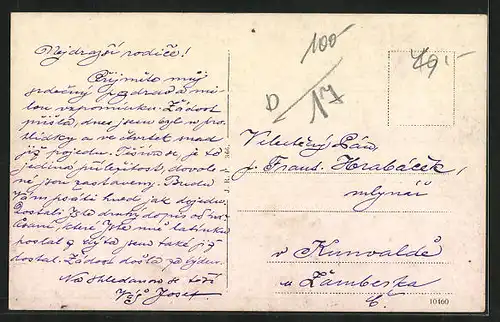 Nejdražší rodiče!
Přijměte můj
srdečný pozdrav a mi-
lou vzpomínku. Žádost
přišla, dnes jsem byl u pro-
hlídky a ve čtvrtek snad
již pojedu. Těším se, je to
jediná příležitost, dovole-
né jsou zastaveny. Budu
Vám psáti hned jak dojedu.
Dostali jste druhý dopis od
které jste mně
poslal a jsem také již
dostal. Žádost došla za týden.
Na shledanou se těší
Váš Josef
100-
D
17
49.-
Velectěný Pán
p. Frant. Hrabáček,
mlynář
v Kunvaldě
u Žamberka
Č.
10460